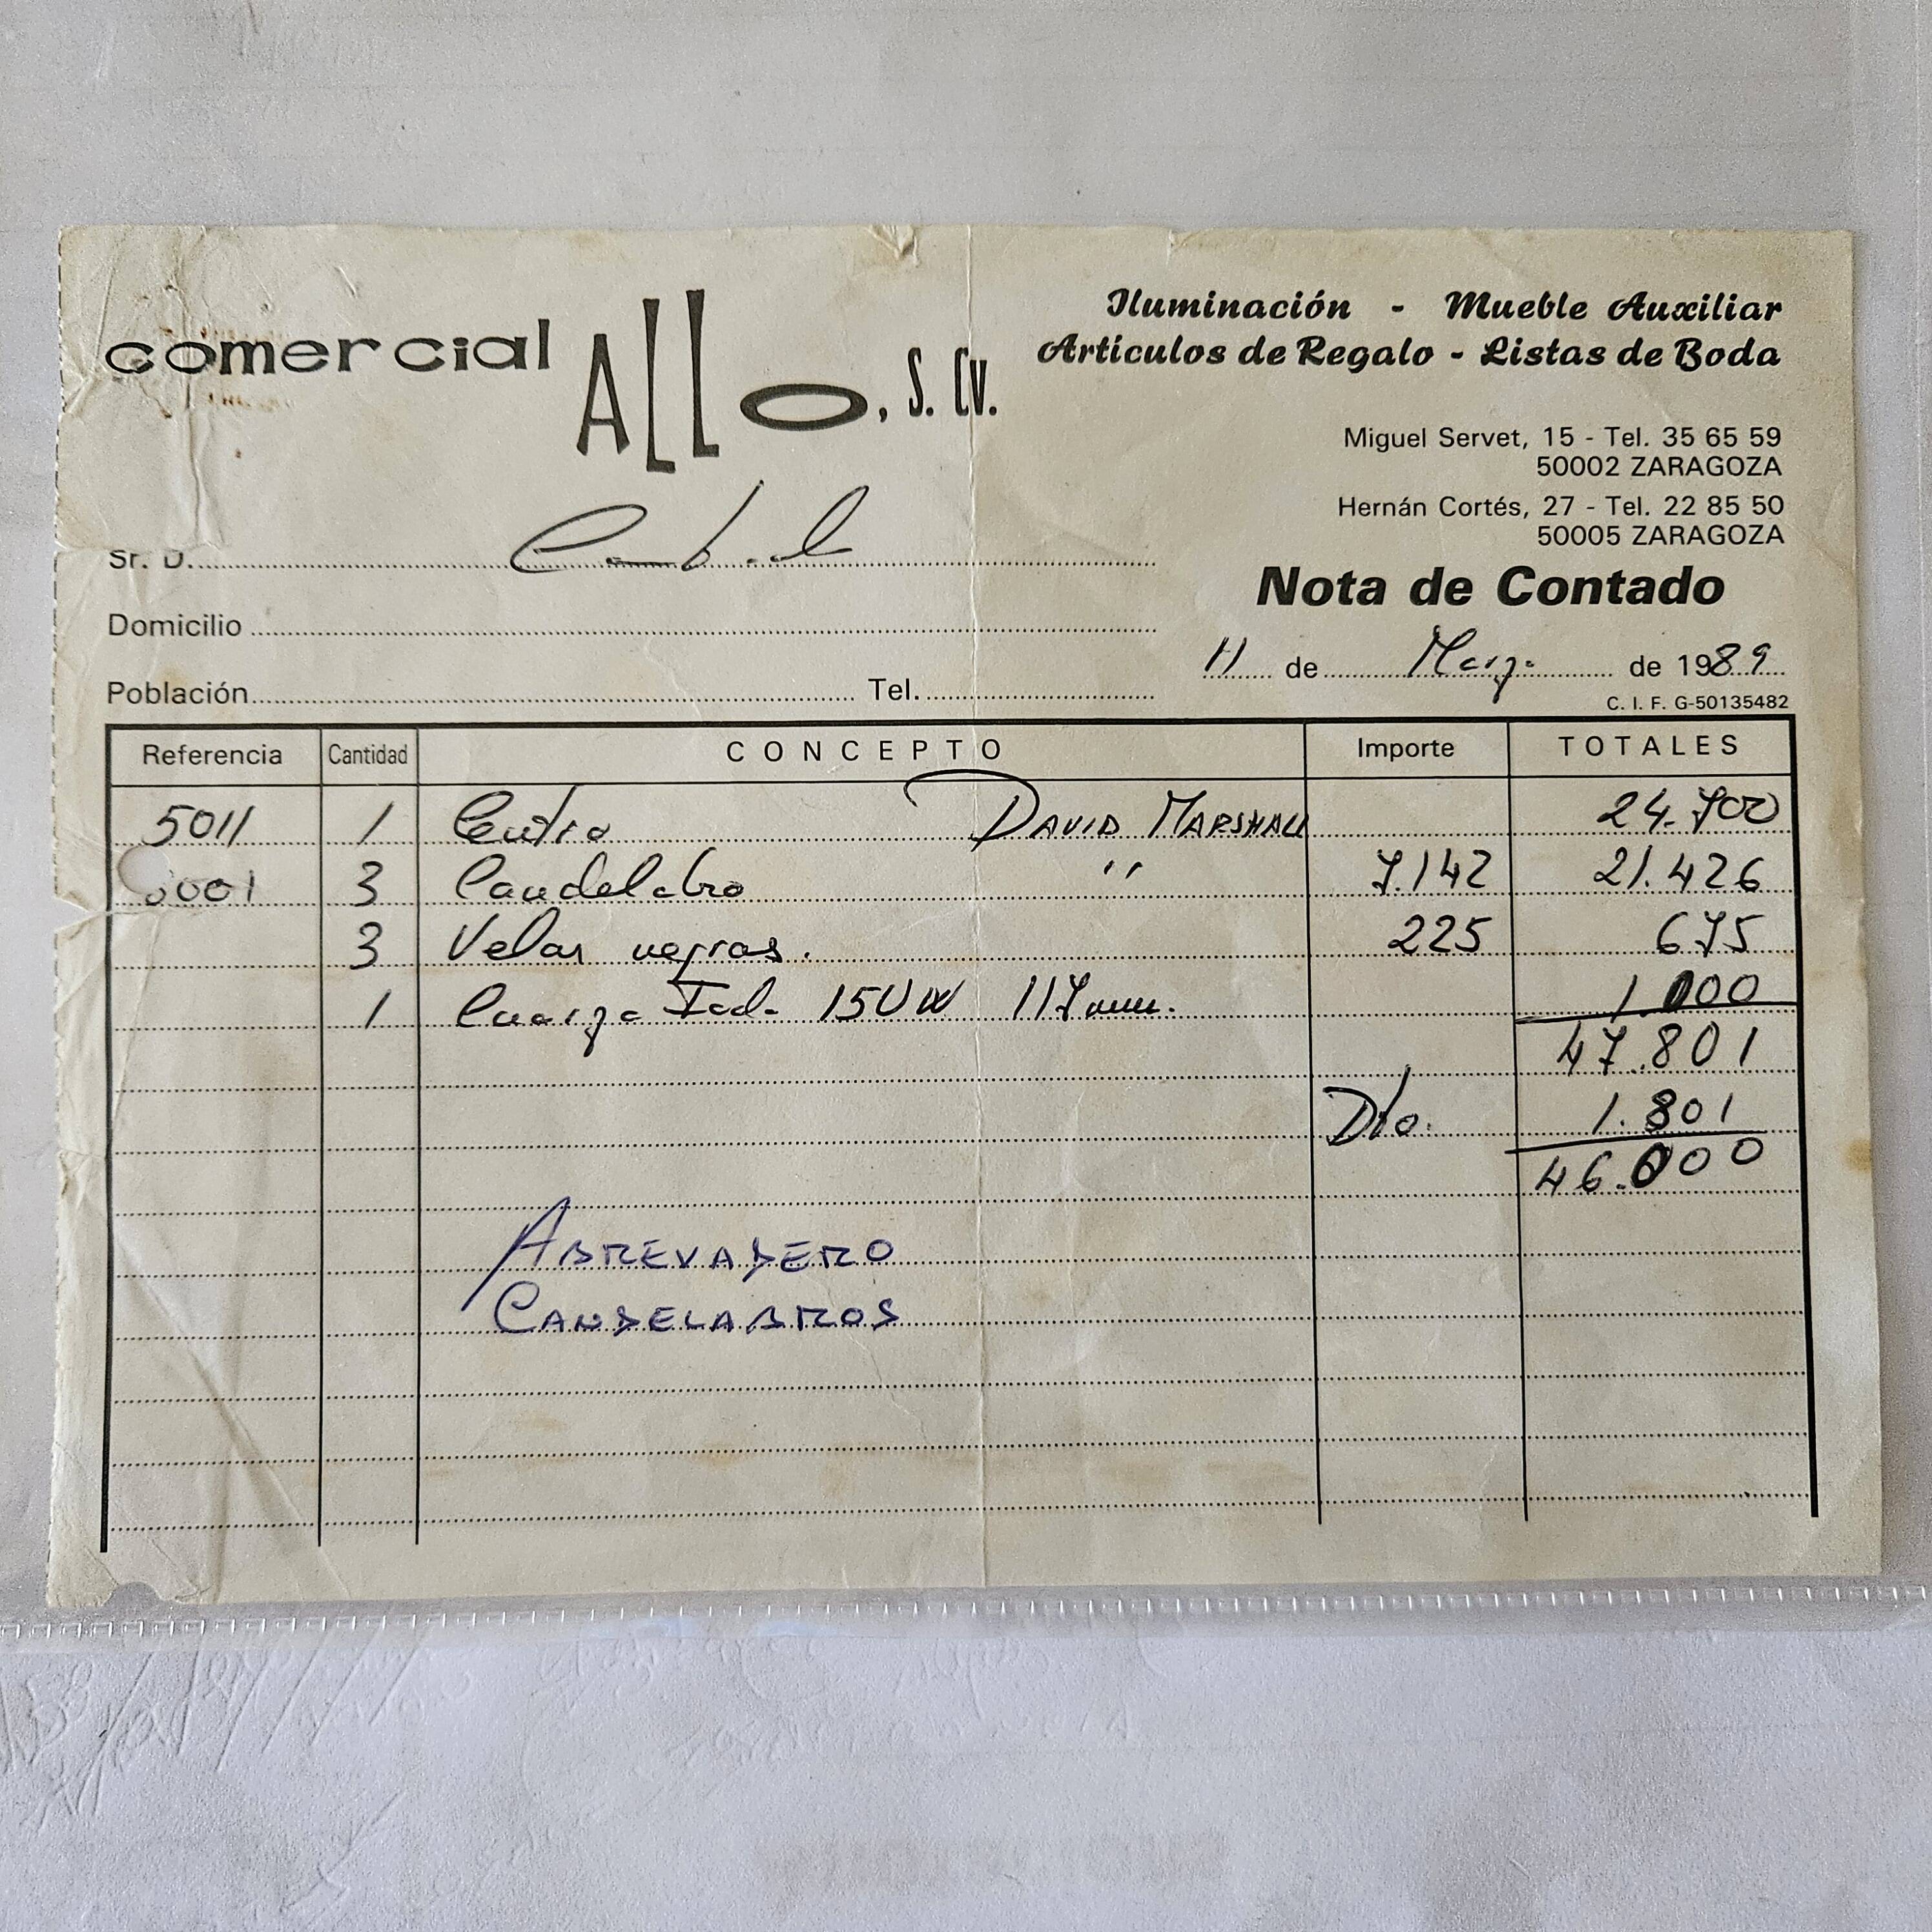 comercial ALLO, S. CV.
Iluminación - Mueble Auxiliar
Artículos de Regalo - Listas de Boda
Miguel Servet, 15 - Tel. 35 65 59
50002 ZARAGOZA
Hernán Cortés, 27 - Tel. 22 85 50
50005 ZARAGOZA
Sr. D. Contado
Domicilio
Población Tel.
Nota de Contado
11 de Marzo de 1989
C. I. F. G-50135482
Referencia Cantidad CONCEPTO Importe TOTALES
5011 1 Centro DAVID MARSHALL 24.700
001 3 Candelabro " 7.142 21.426
3 Velas negras. 225 675
1 Cuarzo Iod. 150W 117mm. 1.000
47.801
Dto. 1.801
46.000
ABREVADERO
CANDELABROS